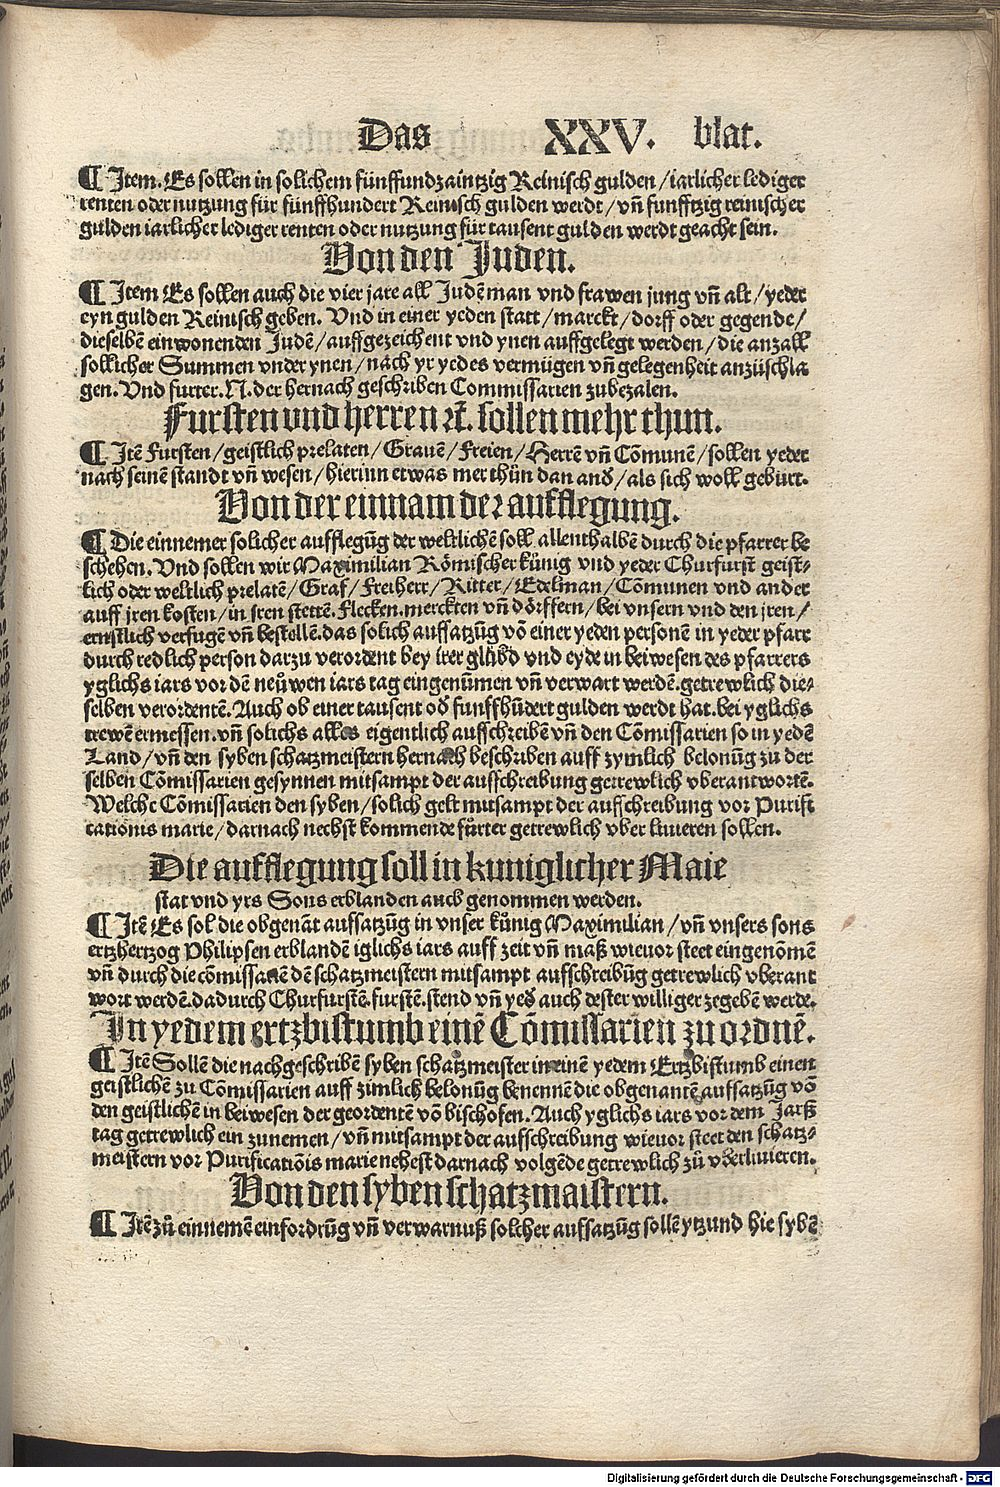 Das XXV. blat.
¶ Jtem. Es sollen in solichem fünffundzaintzig Reinisch gulden / iarlicher lediger
renten oder nutzung für fünffhundert Reinisch gulden werdt / vñ funfftzig reinischer
gulden iarlicher lediger renten oder nutzung für tausent gulden werdt geacht sein.
Von den Juden.
¶ Jtem Es sollen auch die vier jare all Judē man vnd frawen jung vñ alt / yeder
eyn gulden Reinisch geben. Vnd in einer yeden statt / marckt / dorff oder gegende /
dieselbē einwonenden Judē / auffgezeichent vnd ynen auffgelegt werden / die anzall
sollicher Summen vnder ynen / nach yr yedes vermügen vñ gelegenheit anzüschla
gen. Vnd furter. N. der hernach geschriben Commissarien zubezalen.
Fursten vnd herren ꝛc. sollen mehr thun.
¶ Jtē Fursten / geistlich prelaten / Grauē / Freien / Herrē vñ Cōmunē / sollen yeder
nach seinē standt vñ wesen / hierinn etwas mer thün dan and̄ / als sich woll gebürt.
Von der einnam der aufflegung.
¶ Die einnemer solicher aufflegūg der weltlichē soll allenthalbē durch die pfarrer be
schehen. Vnd sollen wir Maximilian Römischer künig vnd yeder Churfurst geist⸗
lich oder weltlich prelatē / Graf / Freiherr / Ritter / Edelman / Cōmunen vnd ander
auff jren kosten / in jren stettē. Flecken. merckten vñ dörffern / bei vnsern vnd den jren /
ernstlich verfugē vñ bestellē. das solich auffsatzūg vō einer yeden personē in yeder pfarr
durch redlich person darzu verordent bey irer glübd vnd eyde in beiwesen des pfarrers
yglichs iars vor dē neüwen iars tag eingenūmen vñ verwart werdē. getrewlich die⸗
selben verordentē. Auch ob einer tausent od̄ funffhūdert gulden werdt hat. bei yglichs
trewē ermessen. vñ solichs alles eigentlich auffschreibē vñ den Cōmissarien so in yedē
Land / vñ den syben schatzmeistern hernach beschriben auff zymlich belonūg zu der
selben Cōmissarien gesynnen mitsampt der auffschreibung getrewlich vberantwortē.
Welche Cōmissarien den syben / solich gelt mitsampt der aufschreibung vor Purifi
cationis marie / darnach nechst kommende fürter getrewlich vber liuieren sollen.
Die aufflegung soll in kuniglicher Maie
stat vnd yrs Sons erblanden auch genommen werden.
¶ Jtē Es sol die obgenāt auffsatzūg in vnser künig Maximilian / vñ vnsers sons
ertzhertzog Philipsen erblandē iglichs iars auff zeit vñ maß wieuor steet eingenōmē
vñ durch die cōmissariē dē schatzmeistern mitsampt aufschreibūg getrewlich vberant
wort werdē. dadurch Churfurstē. furstē. stend vñ yed̄ auch dester williger zegebē werde.
Jn yedem ertzbistumb einē Cōmissarien zu ordnē.
¶ Jtē Sollē die nachgeschribē syben schatzmeister in einē yedem Ertzbistumb einen
geistlichē zu Cōmissarien auff zimlich belonūg benennē die obgenantē auffsatzūg vō
den geistlichē in beiwesen der geordentē vō bischofen. Auch yglichs iars vor dem Jarß
tag getrewlich ein zunemen / vñ mitsampt der aufschreibung wieuor steet den schatz⸗
meistern vor Purificatiōis marie nehest darnach volgēde getrewlich zü vberliuieren.
Von den syben schatzmaistern.
¶ Jtē zü einnemē einfordrūg vñ verwarnuß solcher auffsatzūg sollē ytzund hie sybē
Digitalisierung gefördert durch die Deutsche Forschungsgemeinschaft - DFG